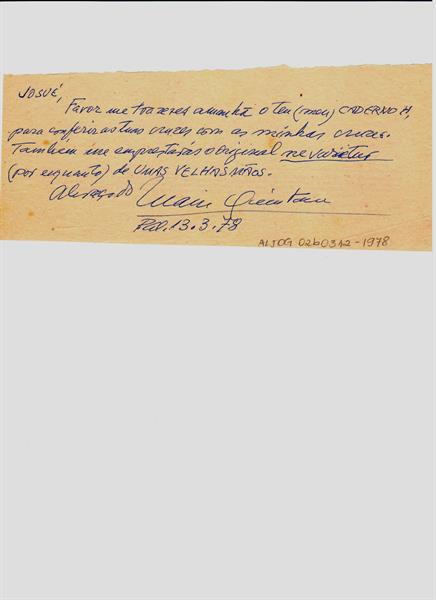 JOSUÉ,
Favor me trazeres amanhã o teu (meu) CADERNO H,
para conferir as tuas cruzes com as minhas cruzes.
Também me emprestarás o original ne varietur
(por enquanto) de UMAS VELHAS MÃOS.
Abraço do Mario Quintana
13.3.78
ALJOG 02b0312-1978